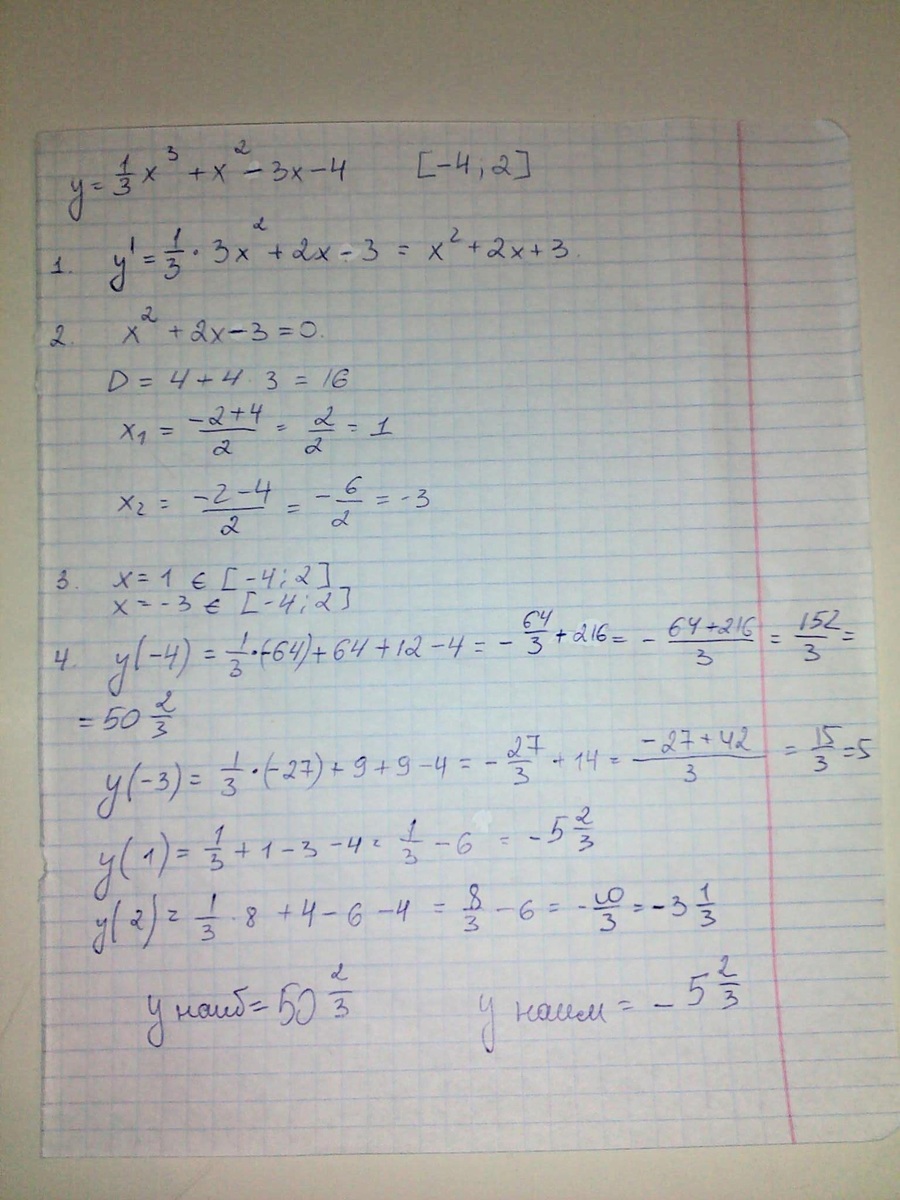 y = 1/3 x³ + x² - 3x - 4 [-4; 2]
1. y' = 1/3 · 3x² + 2x - 3 = x² + 2x + 3.
2. x² + 2x - 3 = 0.
D = 4 + 4 · 3 = 16
x₁ = (-2+4)/2 = 2/2 = 1
x₂ = (-2-4)/2 = -6/2 = -3
3. x = 1 ∈ [-4; 2]
x = -3 ∈ [-4; 2]
4. y(-4) = 1/3 · (-64) + 64 + 12 - 4 = -64/3 + 216 = - (64+216)/3 = 152/3 =
= 50 2/3
y(-3) = 1/3 · (-27) + 9 + 9 - 4 = -27/3 + 14 = (-27+42)/3 = 15/3 = 5
y(1) = 1/3 + 1 - 3 - 4 = 1/3 - 6 = -5 2/3
y(2) = 1/3 · 8 + 4 - 6 - 4 = 8/3 - 6 = -10/3 = -3 1/3
y наиб = 50 2/3 y наим = -5 2/3